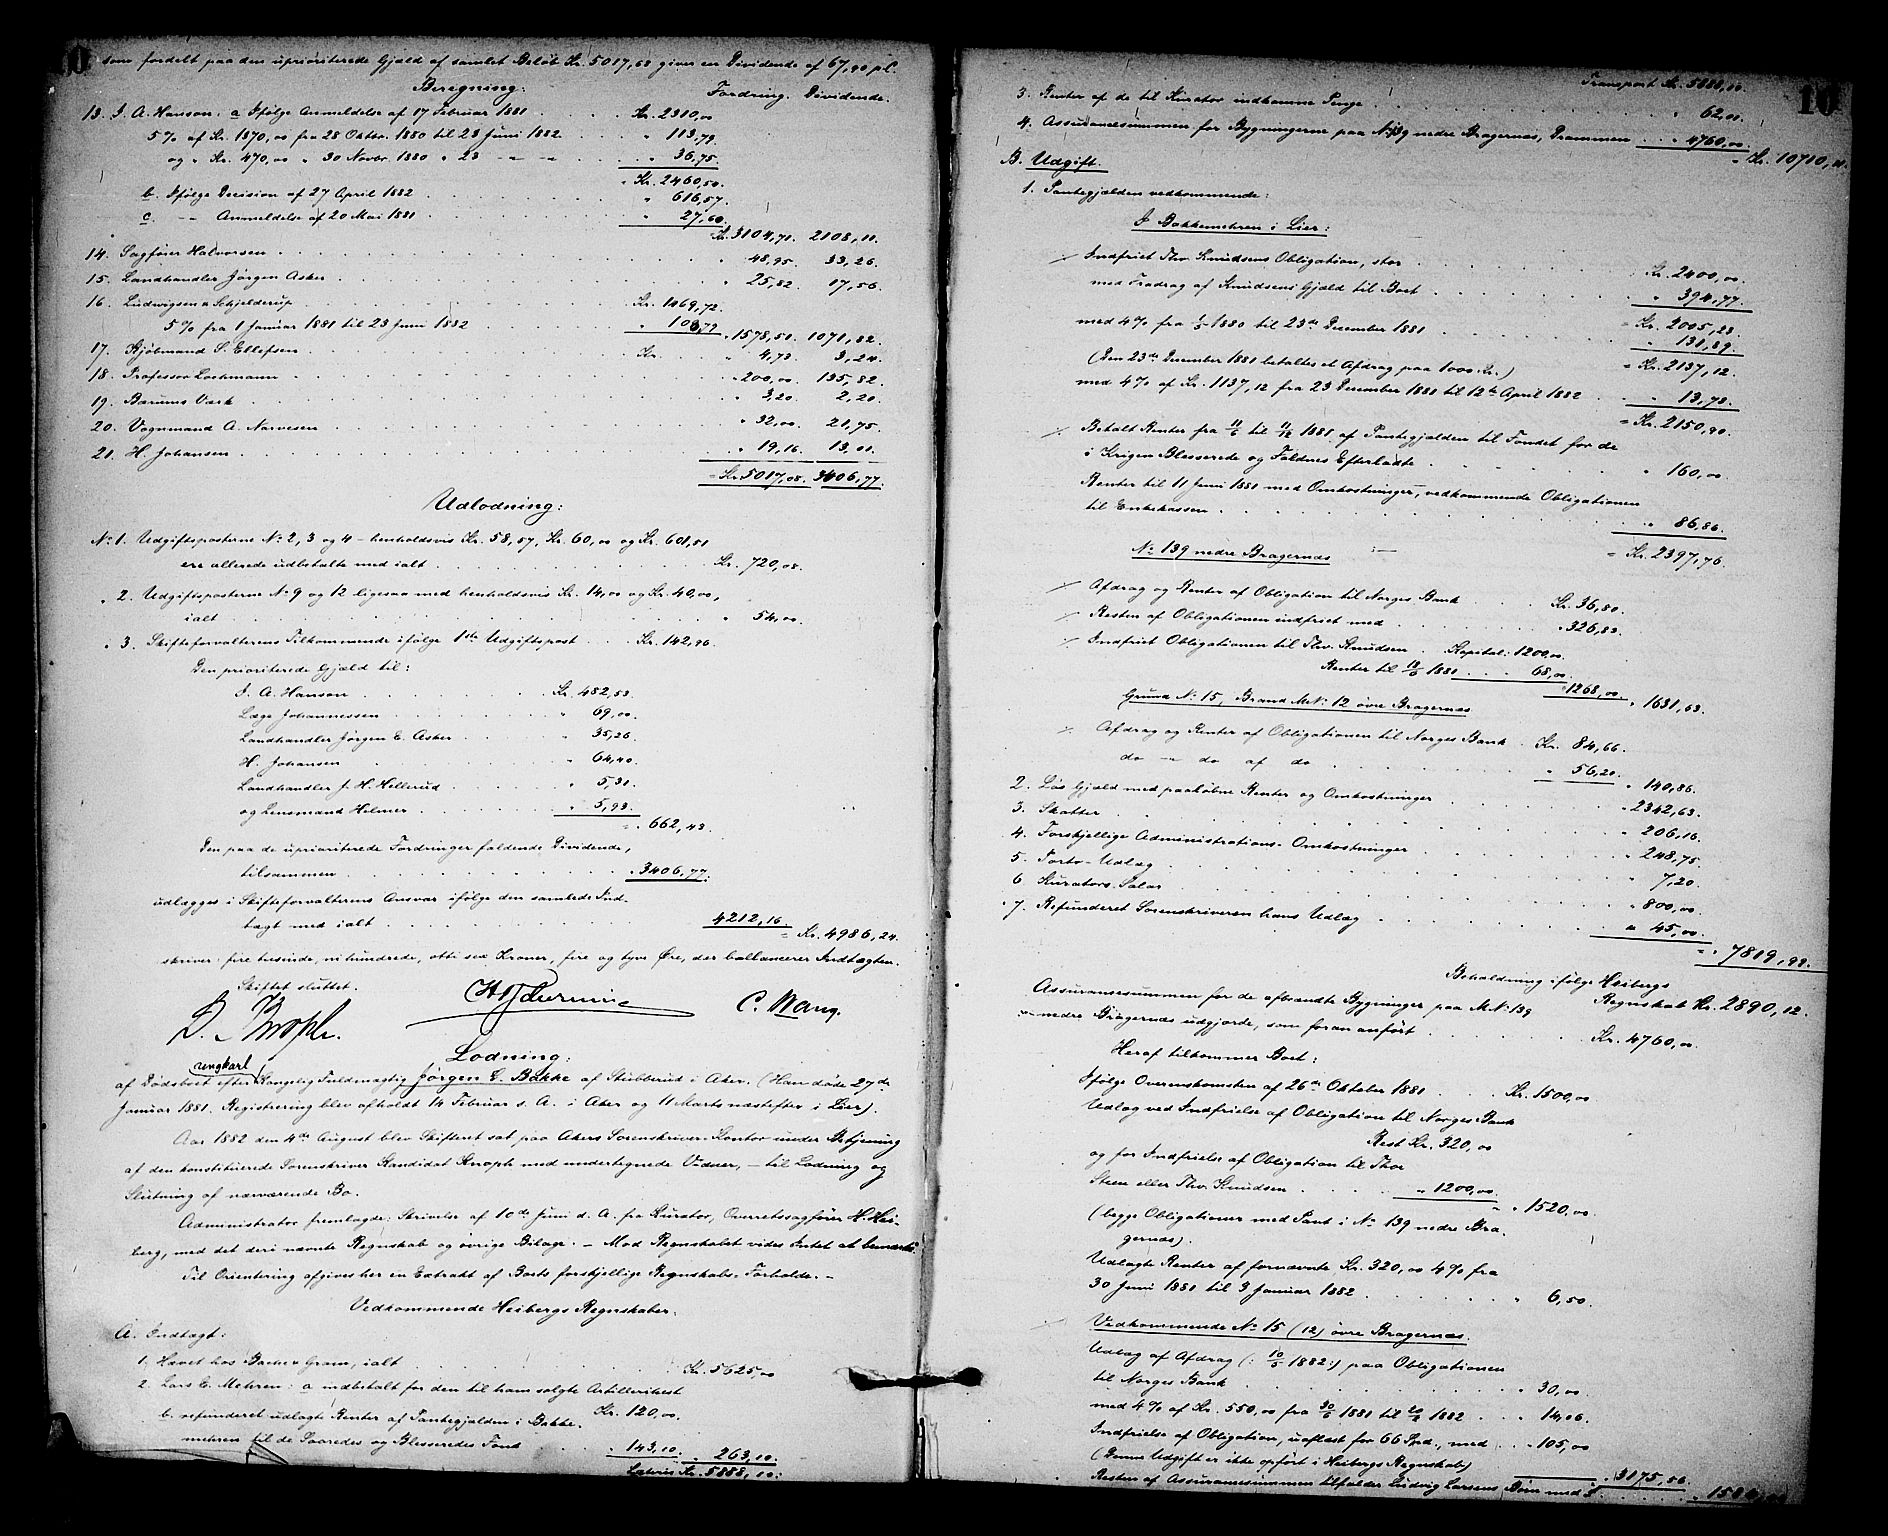 10
som fordelt paa den uprioriterede Gjæld af samlet Beløb Kr. 5017,68 giver en Dividende af 67,90 pC.
Beregning: Fordring. Dividende.
13. J. A. Hanson: a Ifølge Anmeldelse af 17 Februar 1881 Kr. 2310,00
5 % af Kr. 1870,00 fra 28 Oktbr. 1880 til 23 Juni 1882 " 113,79
og " Kr. 470,00 " 30 Novbr. 1880 " 23 — " — " 36,75
" Kr. 2460,50.
b. Ifølge Decision af 27 April 1882 " 616,57
c. — " — Anmeldelse af 20 Mai 1881 " 27,60
Kr. 3104,71. 2108,11.
14. Sagfører Halvorsen " 48,95. 33,26
15. Landhandler Jørgen Asker " 25,82 17,56
16. Ludwigsen & Schjelderup Kr. 1469,72
5 % fra 1 Januar 1881 til 23 Juni 1882 " 108,79 " 1578,51 1071,82
17. Kjøbmand S. Ellefsen Kr. " 4,73 3,24
18. Professor Lochmann " 200,00 135,82
19. Bærums Værk " 3,20 2,20.
20. Vognmand A. Narvesen " 32,00 21,75.
21. H. Johansen " 19,16 13,01
= Kr. 5017,08. 3406,77.
Udlodning:
No 1. Udgiftsposterne No 2, 3 og 4 — henholdsvis Kr. 58,57, Kr. 60,00 og Kr. 601,51
ere allerede udbetalte med ialt Kr. 720,08.
" 2. Udgiftsposterne No 9 og 12 ligesaa med henholdsvis Kr. 14,00 og Kr. 40,00,
ialt " 54,00.
" 3. Skifteforvalterens Tilkommende ifølge 1ste Udgiftspost Kr. 142,96
Den prioriterede Gjæld til:
J. A. Hanson Kr. 482,53
Læge Johannessen " 69,00
Landhandler Jørgen E. Asker " 35,26
H. Johansen " 64,40
Landhandler J. H. Hellerud " 5,31
og Lensmand Helmer " 5,93
= " 662,43
Den paa de uprioriterede Fordringer faldende Dividende,
tilsammen " 3406,77
udlægges i Skifteforvalterens Ansvar ifølge den samlede Ind-
tægt med ialt 4212,16
= Kr. 4986,24.
skriver: fire tusinde, nihundrede, otti sex Kroner, fire og tyve Øre, der ballancerer Indtægten.
Skiftet sluttet.
D. Knoph. C. Wang.
Lodning:
ungkarl
af Dødsboet efter Kongelig Fuldmægtig Jørgen E. Bakke af Stubberud i Aker. (Han døde 27de
Januar 1881. Registrering blev afholdt 14 Februar s. A. i Aker og 11 Marts næstefter i Lier).
Aar 1882 den 4de August blev Skifteret sat paa Akers Sorenskriver-Kontor under Betjening
af den konstituerede Sorenskriver Kandidat Knoph med undertegnede Vidner, — til Lodning og
Slutning af nærværende Bo.
Administrator fremlagde: Skrivelse af 10de Juni d. A. fra Kurator, Overretssagfører H. Hei-
berg, med det deri nævnte Regnskab og øvrige Bilage. — Mod Regnskabet vides Intet at bemærke.
Til Orientering afgives her en Extrakt af Boets forskjellige Regnskabs-Forholde. —
Vedkommende Heibergs Regnskaber.
A. Indtægt:
1. Hævet hos Bache & Gram, ialt Kr. 5625,00
2. Lars E. Mehren: a indbetalt for den til ham solgte Artillerihest
Kr. 120,00.
b. refunderet udlagte Renter af Pantegjælden i Bakke-
mehren til de Saaredes og Blesseredes Fond " 143,10. " 263,10.
Lateris Kr. 5888,10.
10
Transport Kr. 5888,10.
3. Renter af de til Kurator indkomne Penge " 62,00.
4. Assurancesummen for Bygningerne paa No 139 nedre Bragernæs, Drammen " 4760,00
= Kr. 10710,11.
B. Udgift.
1. Pantegjælden vedkommende:
I Bakkemehren i Lier:
Indfriet Thv. Knudsens Obligation, stor Kr. 2400,00.
med Fradrag af Knudsens Gjæld til Boet " 394,77.
= Kr. 2005,23.
med 4% fra 1/5 1880 til 23de December 1881 " 131,89.
= Kr. 2137,12.
(Den 23de December 1881 betaltes et Afdrag paa 1000 Kr.)
med 4% af Kr. 1137,12 fra 23 December 1881 til 12te April 1882 " 13,78.
= Kr. 2150,90.
Betalt Renter fra 11/6 til 11/12 1881 af Pantegjælden til Fondet for de
i Krigen Blesserede og Faldnes Efterladte " 160,00.
Renter til 11 Juni 1881 med Omkostninger, vedkommende Obligationen
til Enkekassen " 86,86.
= Kr. 2397,76.
No 139 nedre Bragernæs
Afdrag og Renter af Obligation til Norges Bank Kr. 36,80.
Resten af Obligationen indfriet med " 326,83.
Indfriet Obligationen til Thv. Knudsen Kapital: 1200,00
Renter til 18/6 1881 68,00.
" 1268,00 " 1631,63.
Grund No 15, Brand M.No 12 øvre Bragernæs
Afdrag og Renter af Obligationen til Norges Bank Kr. 84,66.
do — " — do af do " 56,20.
" 140,86.
2. Løs Gjæld med paaløbne Renter og Omkostninger " 2342,63.
3. Skatter " 206,16
4. Forskjellige Administrations-Omkostninger " 248,75.
5. Porto-Udlæg " 7,20.
6. Kurators Salær " 800,00.
7. Refunderet Sorenskriveren hans Udlæg " 45,00.
= " 7819,99.
Beholdning ifølge Heibergs
Regnskab Kr. 2890,12.
Assurancesummen for de afbrændte Bygninger paa M.No 139
nedre Bragernæs udgjorde, som foran anført Kr. 4760,00
Heraf tilkommer Boet:
Ifølge Overenskomsten af 26de Oktober 1881 Kr. 1500,00
Udlæg ved Indfrielse af Obligation til Norges Bank
Rest Kr. 320,00
og for Indfrielse af Obligation til Thor
Steen eller Thv. Knudsen " 1200,00.
= " 1520,00.
(begge Obligationer med Pant i No 139 nedre Bra-
gernæs).
Udlagte Renter af fornævnte Kr. 320,00 4% fra
30 Juni 1881 til 3 Januar 1882 " 6,50.
Vedkommende No 15 (12) øvre Bragernæs.
Udlæg af Afdrag (: 10/5 1882:) paa Obligationen
til Norges Bank " 30,00.
med 4% af Kr. 550,00 fra 30/6 1881 til 1882 " 14,06.
Indfrielse af Obligation, uaflæst for 66 Spd., med " 105,00
(Denne Udgift er ikke opført i Heibergs Regnskab)
" 3175,56
Resten af Assurancesummen tilfalder Ludvig Larsens Børn med